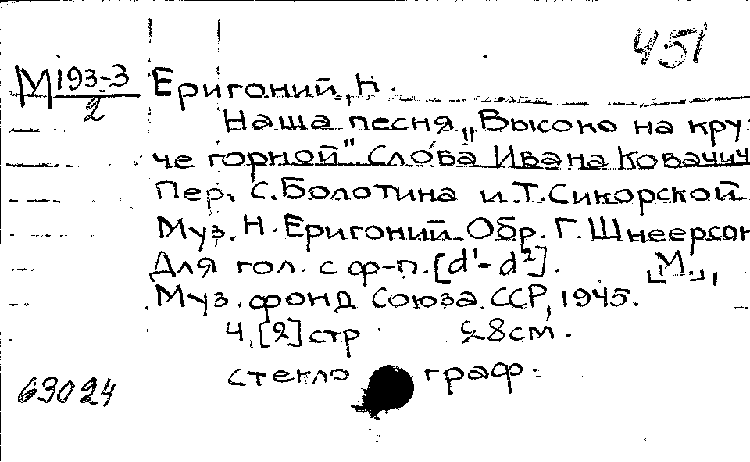 451
М 193-3 Еригоний, Н.
2
Наша песня „Высоко на кру-
че горной". Слова Ивана Ковачич
Пер. С. Болотина и Т. Сикорской
Муз. Н. Еригоний. Обр. Г. Шнеерсон
Для гол. с ф-п. [d¹-d²]. [М.],
Муз. фонд Союза ССР, 1945.
4, [2] стр 28 см.
63024 стекло граф.